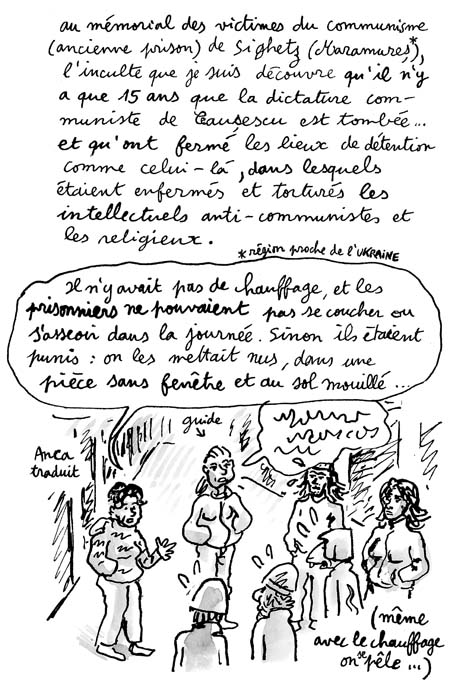 au mémorial des victimes du communisme
(ancienne prison) de Sighetz (Maramureş*),
l'inculte que je suis découvre qu'il n'y
a que 15 ans que la dictature com-
muniste de Cauşescu est tombée...
et qu'ont fermé les lieux de détention
comme celui-là, dans lesquels
étaient enfermés et torturés les
intellectuels anti-communistes et
les religieux.
*région proche de l'UKRAINE
Il n'y avait pas de chauffage, et les
prisonniers ne pouvaient pas se coucher ou
s'asseoir dans la journée. Sinon ils étaient
punis : on les mettait nus, dans une
pièce sans fenêtre et au sol mouillé...
guide
Anca
traduit
(même
avec le chauffage
on se pèle...)